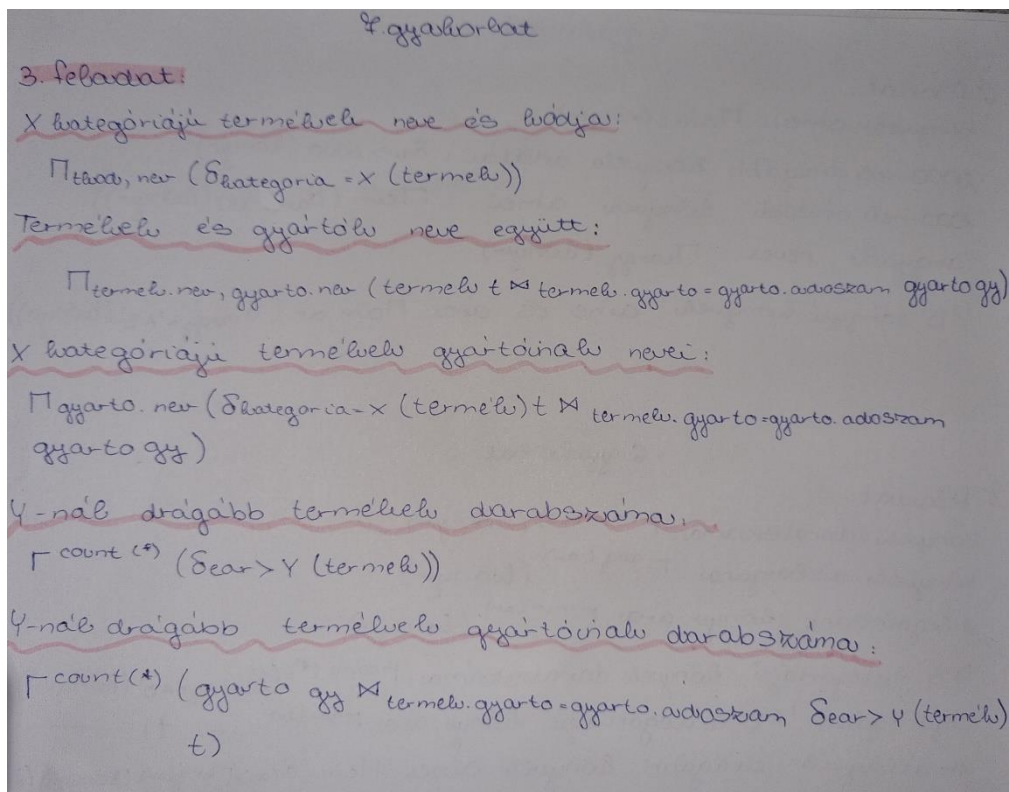 7. gyakorlat
3. feladat:
X kategóriájú termékek neve és kódja:
Π tkod, nev (δkategoria = X (termek))
Termékek és gyártók neve együtt:
Π termek.nev, gyarto.nev (termek t ⋈ termek.gyarto = gyarto.adoszam gyarto gy)
X kategóriájú termékek gyártóinak nevei:
Π gyarto.nev (δkategoria=X (termék) t ⋈ termek.gyarto=gyarto.adoszam
gyarto gy)
Y-nál drágább termékek darabszáma:
Γ count (*) (δear > Y (termek))
Y-nál drágább termékek gyártóinak darabszáma:
Γ count(*) (gyarto gy ⋈ termek.gyarto=gyarto.adoszam δear > Y (termék)
t)